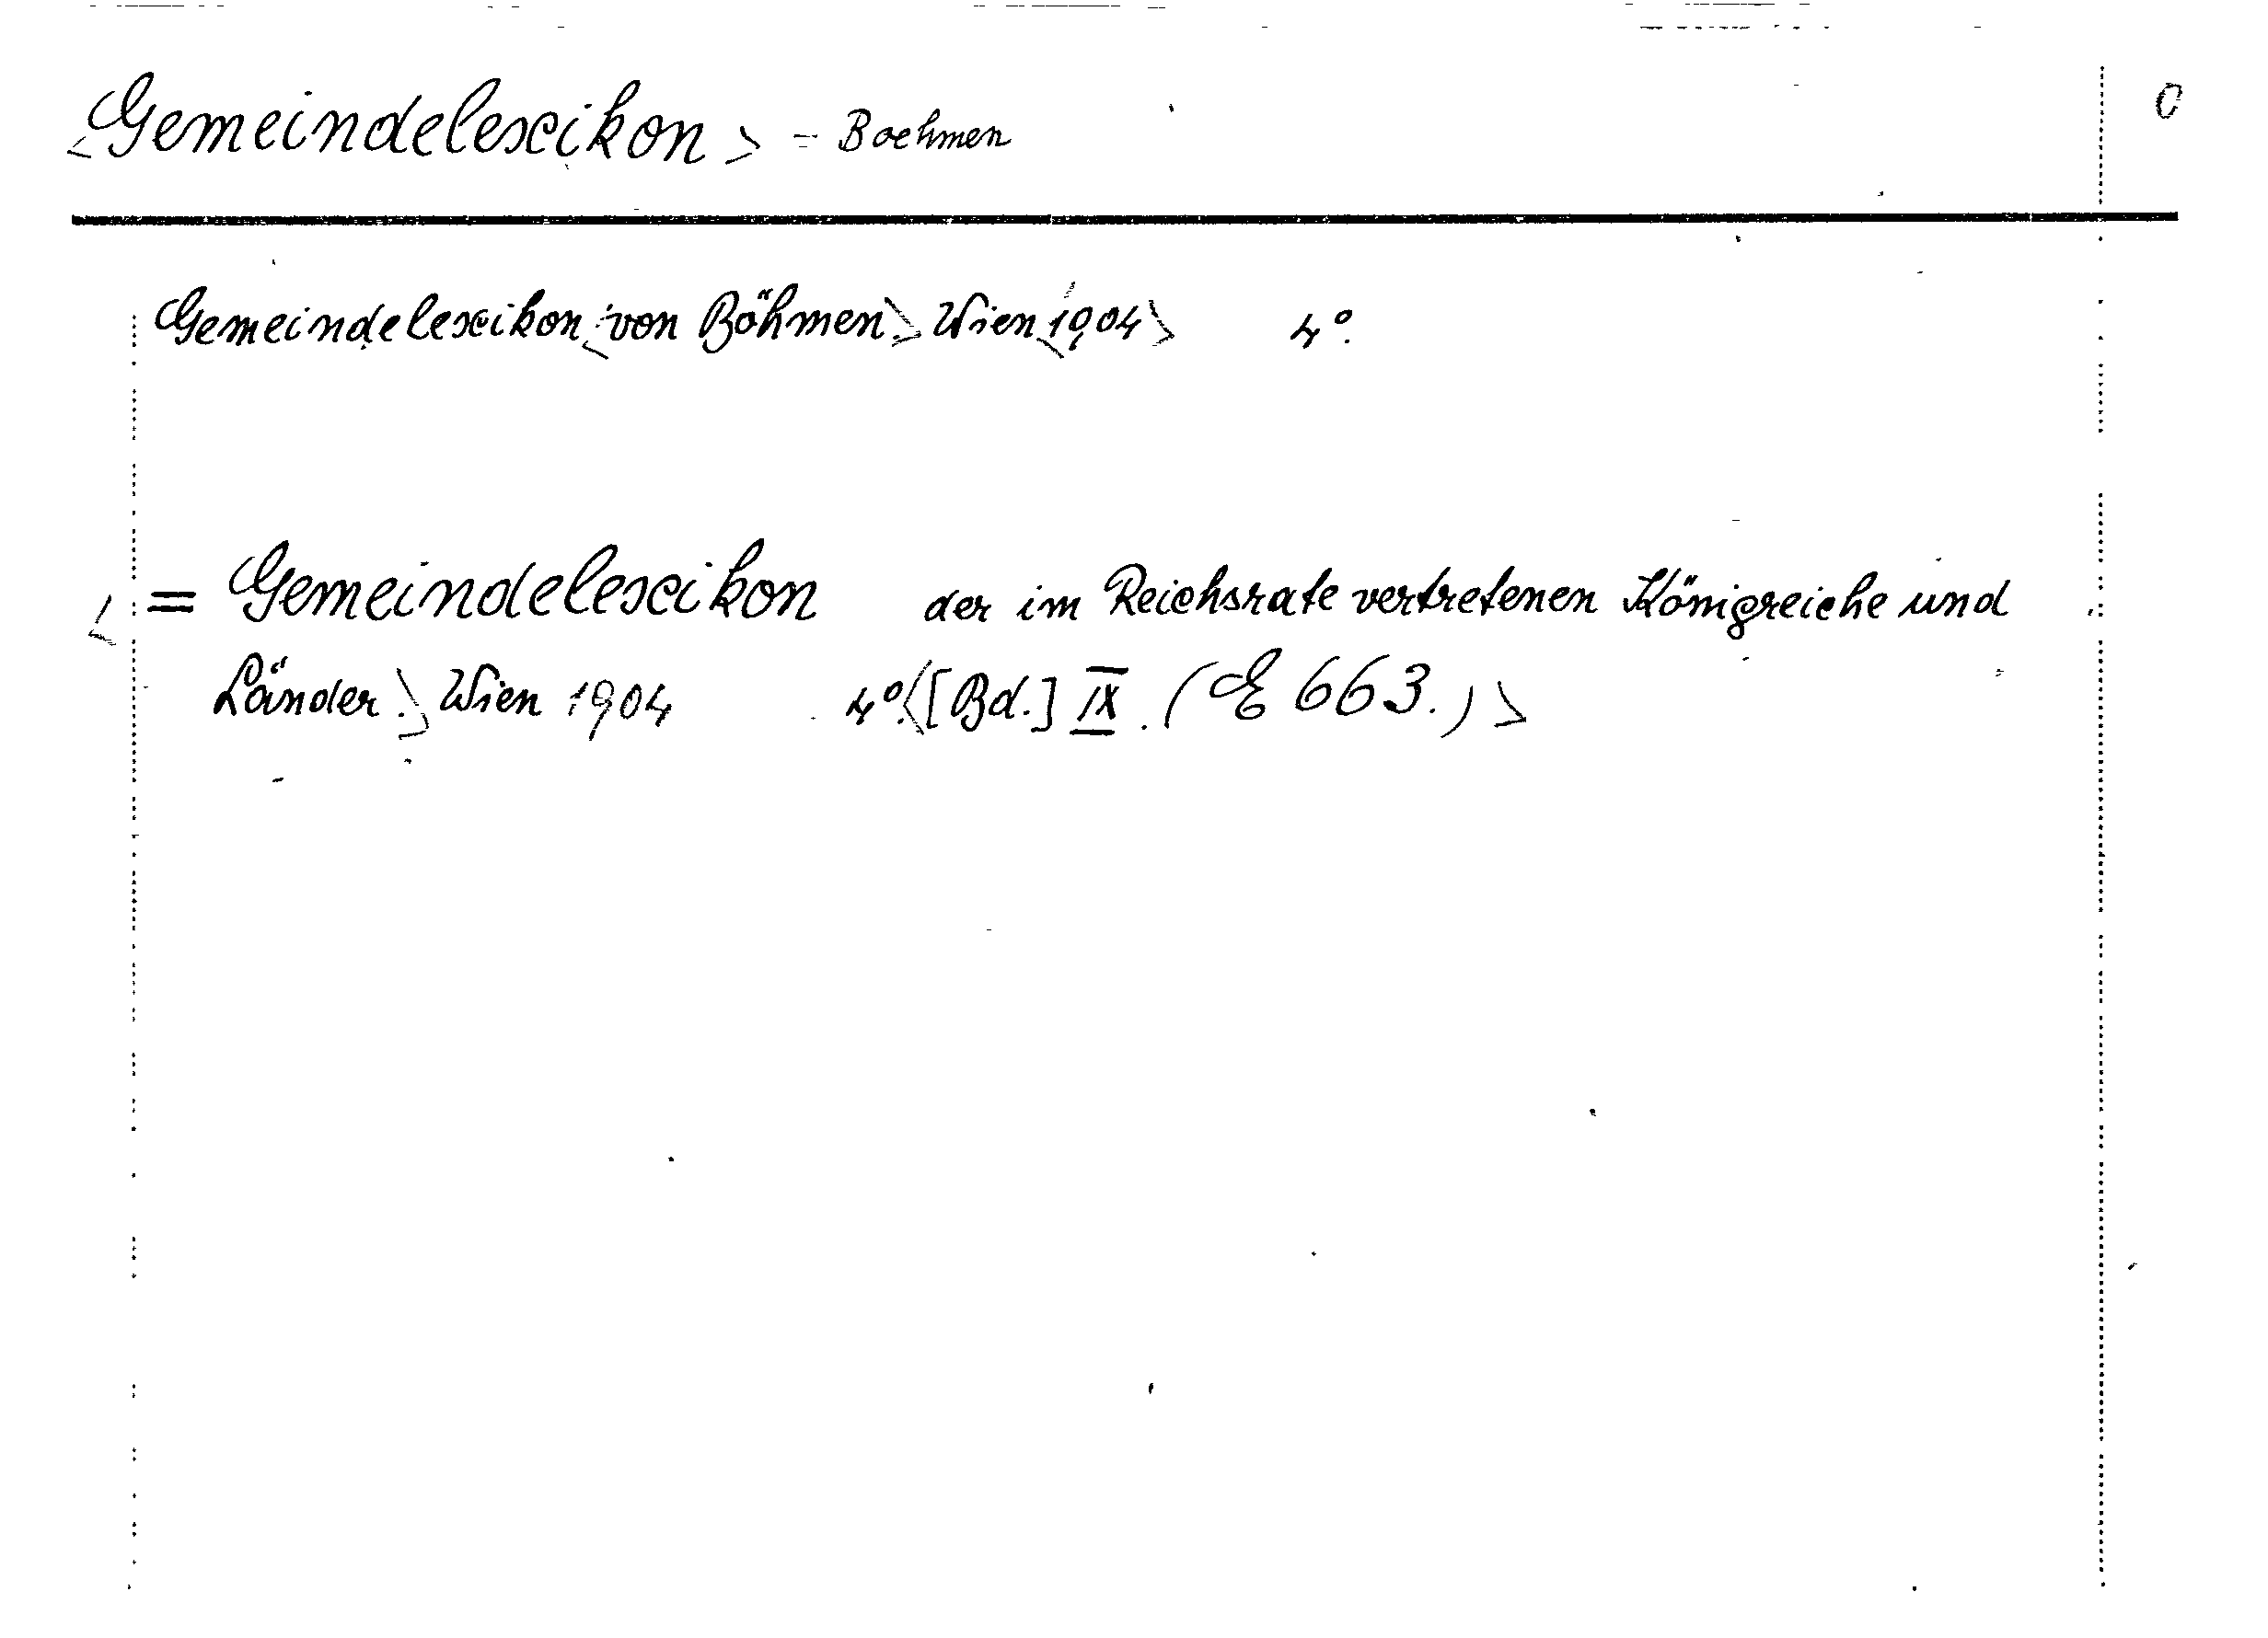 <Gemeindelexikon> - Boehmen C
Gemeindelexikon <von Böhmen.> Wien <1904> 4°.
<= Gemeindelexikon der im Reichsrate vertretenen Königreiche und
Länder.> Wien 1904 4°. <[Bd.] IX. (E 663.)>